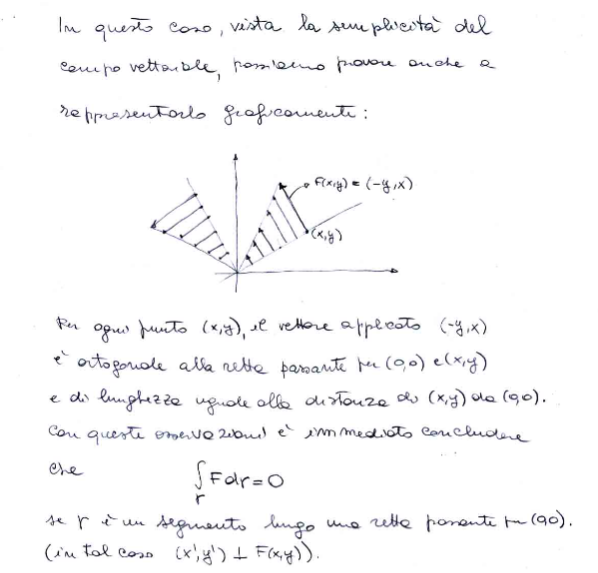 In questo caso, vista la semplicità del
campo vettoriale, possiamo provare anche a
rappresentarlo graficamente:
F(x,y) = (-y,x)
(x,y)
Per ogni punto (x,y), il vettore applicato (-y,x)
è ortogonale alla retta passante per (0,0) e (x,y)
e di lunghezza uguale alla distanza di (x,y) da (0,0).
Con queste osservazioni è immediato concludere
che ∫_r F dr = 0
se r è un segmento lungo una retta passante per (0,0).
(in tal caso (x',y') ⊥ F(x,y)).